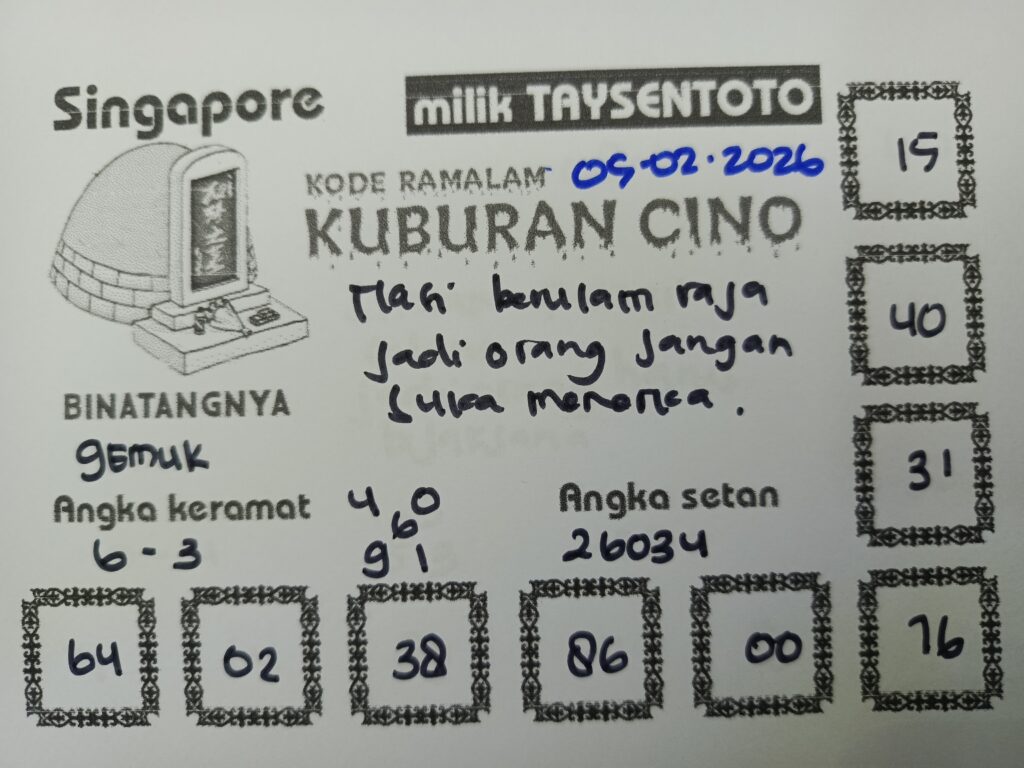 Singapore
milik TAYSENTOTO
KODE RAMALAM 05-02-2026
KUBURAN CINO
Mari berulam raja
jadi orang jangan
suka menerka.
BINATANGNYA
gemuk
Angka keramat
6 - 3
4 0
6
9 1
Angka setan
26034
15
40
31
76
64 02 38 86 00